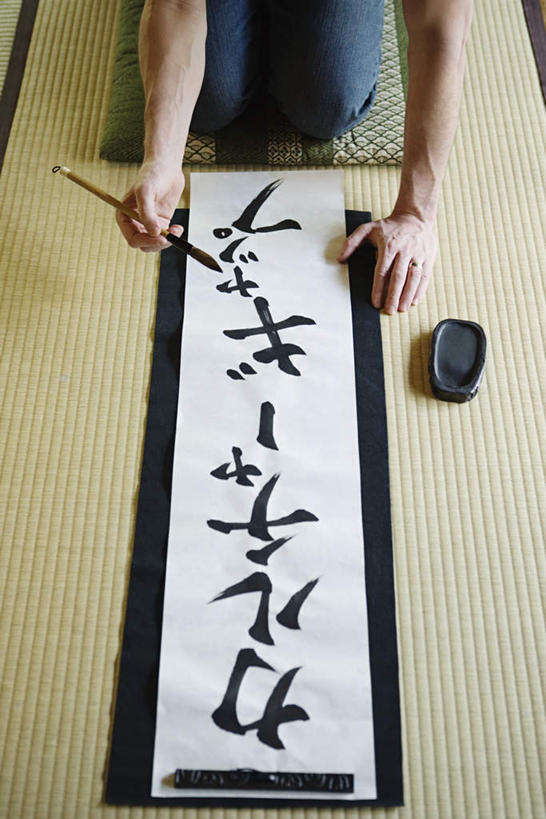 カルチャーギャップ